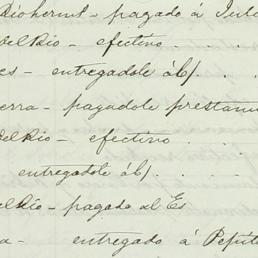 Diohornt - pagado á Jul
del Rio - efectivo . . .
es - entregadole á b/. . .
erra - pagadole prestam
del Rio - efectivo . . . .
entregadole á b/. . . .
el Rio - pagado al Es
a - entregado á Pepit